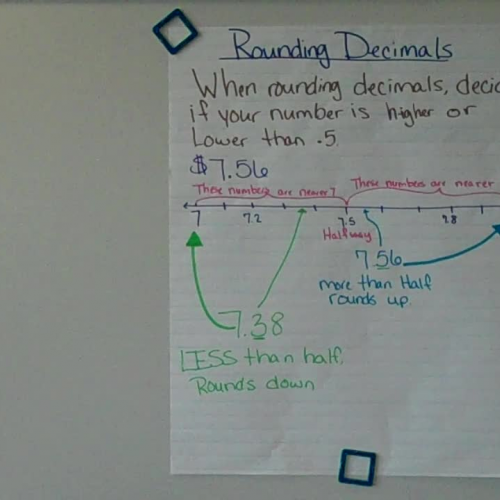 Rounding Decimals
When rounding decimals, decid
if your number is higher or
Lower than .5
$7.56
These numbers are nearer 7
These numbers are nearer
7
7.2
7.5
Halfway
7.56
more than Half
rounds up.
7.38
LESS than half,
Rounds down